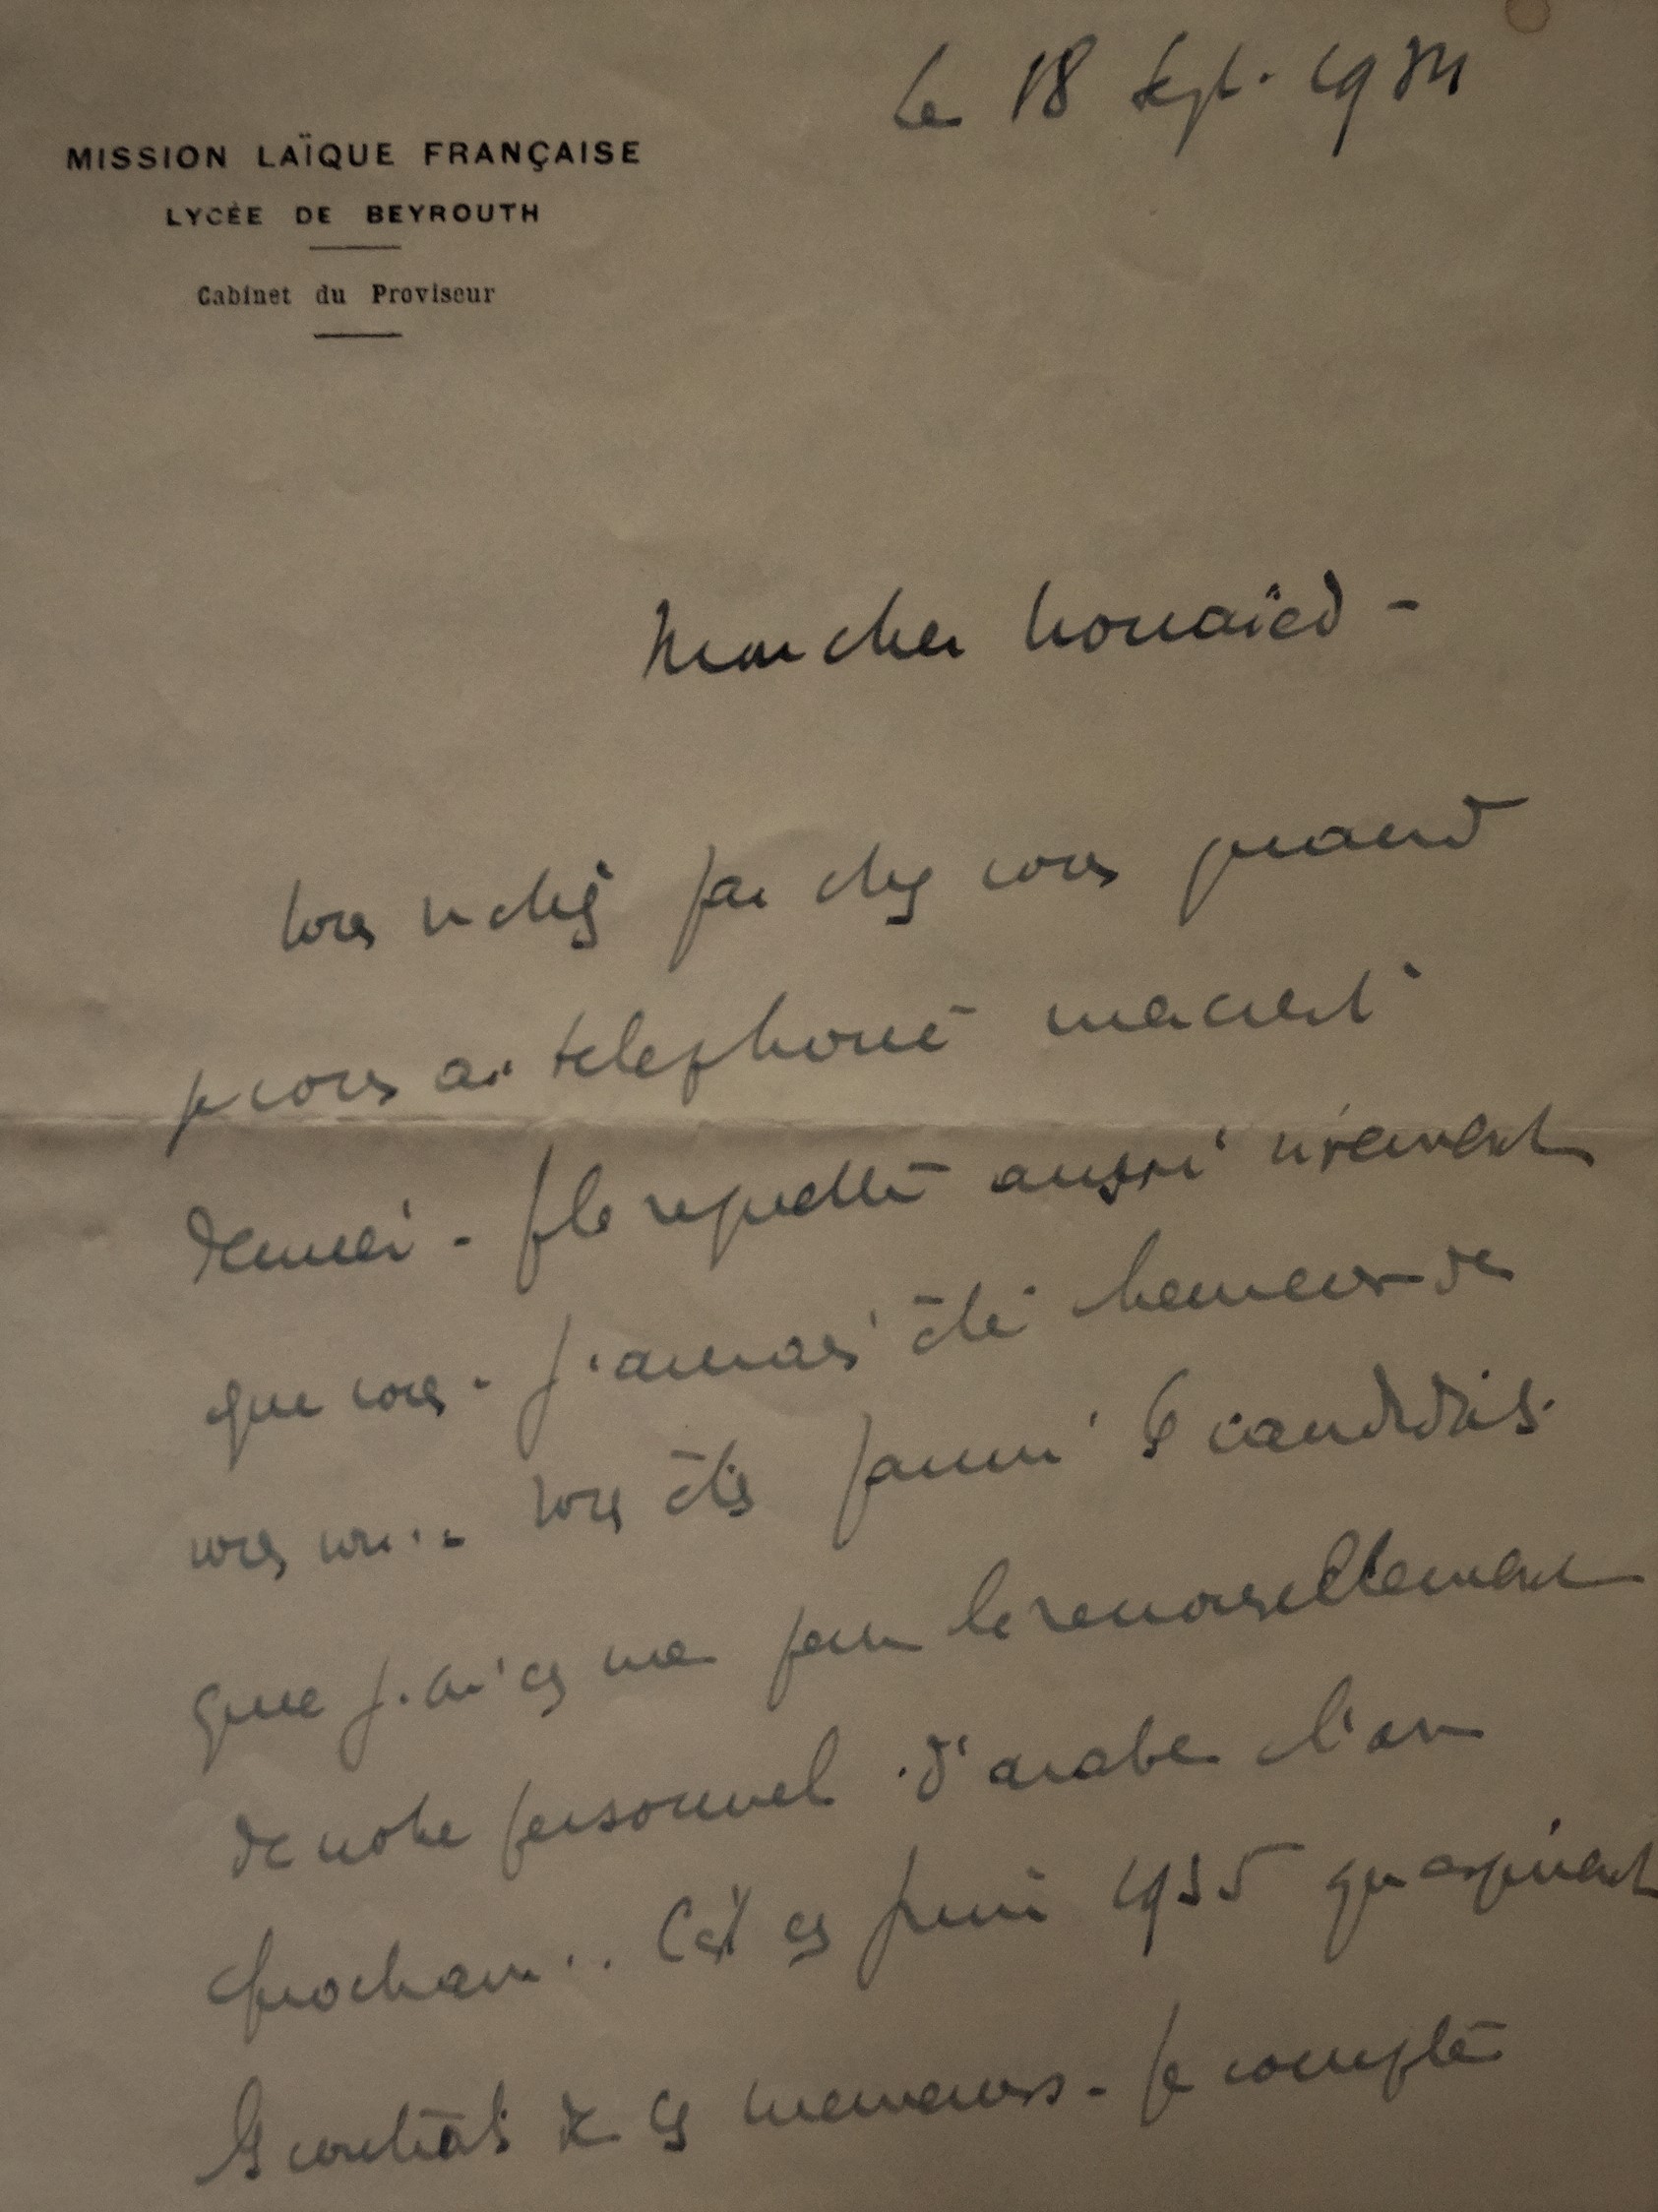 le 18 Sept. 1934
MISSION LAÏQUE FRANÇAISE
LYCÉE DE BEYROUTH
Cabinet du Proviseur
Mon cher Honaïed -
Vous n'étiez pas chez vous quand
je vous ai téléphoné mercredi
demier. Je le regrette aussi vivement
que vous. J'aurais été heureux de
vous voir.. Vous êtes parmi les candidats
que j'ai en vue pour le renouvellement
de notre personnel d'arabe l'an
prochain.. C'est en Juin 1935 qu'expirent
les contrats de ces messieurs. Je compte